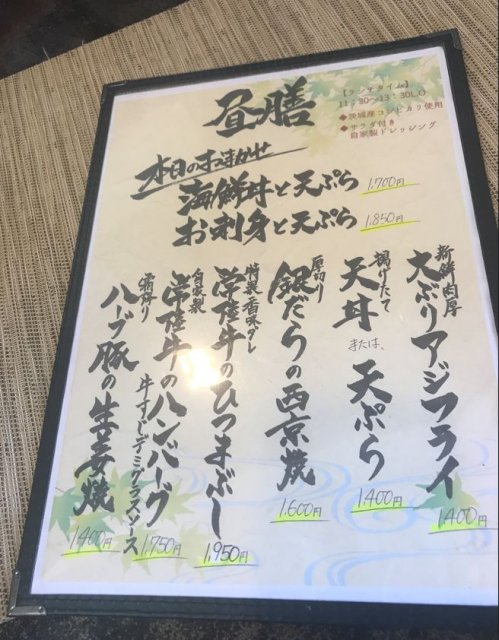 昼膳
【ランチタイム】
11:30〜13:30L.O
◆茨城産コシヒカリ使用
◆サラダ付き
自家製ドレッシング
本日のおまかせ
海鮮丼と天ぷら 1,700円
お刺身と天ぷら 1,850円
新鮮肉厚
大ぶりアジフライ
1,400円
揚げたて
天丼または、天ぷら
1,400円
厚切り
銀だらの西京焼
1,600円
特製香味ダレ
常陸牛のひつまぶし
1,950円
自家製
常陸牛のハンバーグ
牛すじデミグラスソース
1,750円
霜降り
ハーブ豚の生姜焼
1,400円